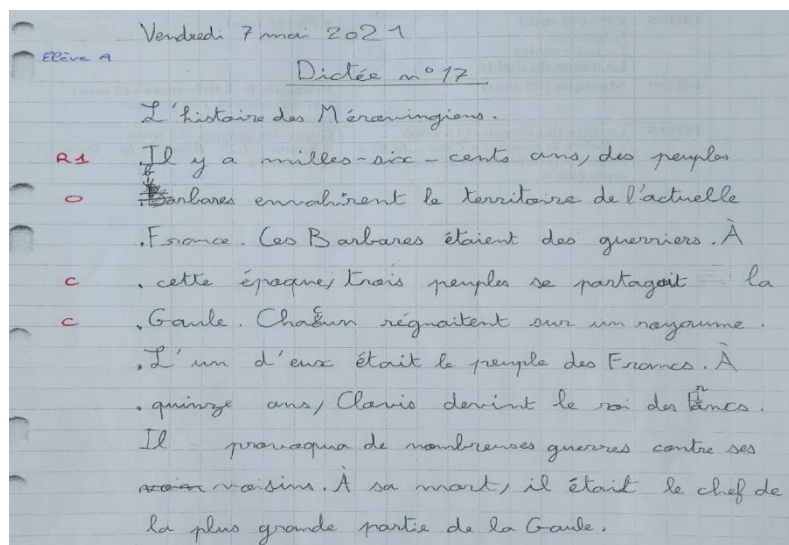 Vendredi 7 mai 2021
Elève A
Dictée n° 17
L'histoire des Mérovingiens.
R1 Il y a milles-six-cents ans, des peuples
O barbares envahirent le territoire de l'actuelle
France. Ces Barbares étaient des guerriers. À
C cette époque, trois peuples se partagait la
C Gaule. Chacun régnaitent sur un royaume.
L'un d'eux était le peuple des Francs. À
quinze ans, Clovis devint le roi des Francs.
Il provoqua de nombreuses guerres contre ses
voisins. À sa mort, il était le chef de
la plus grande partie de la Gaule.